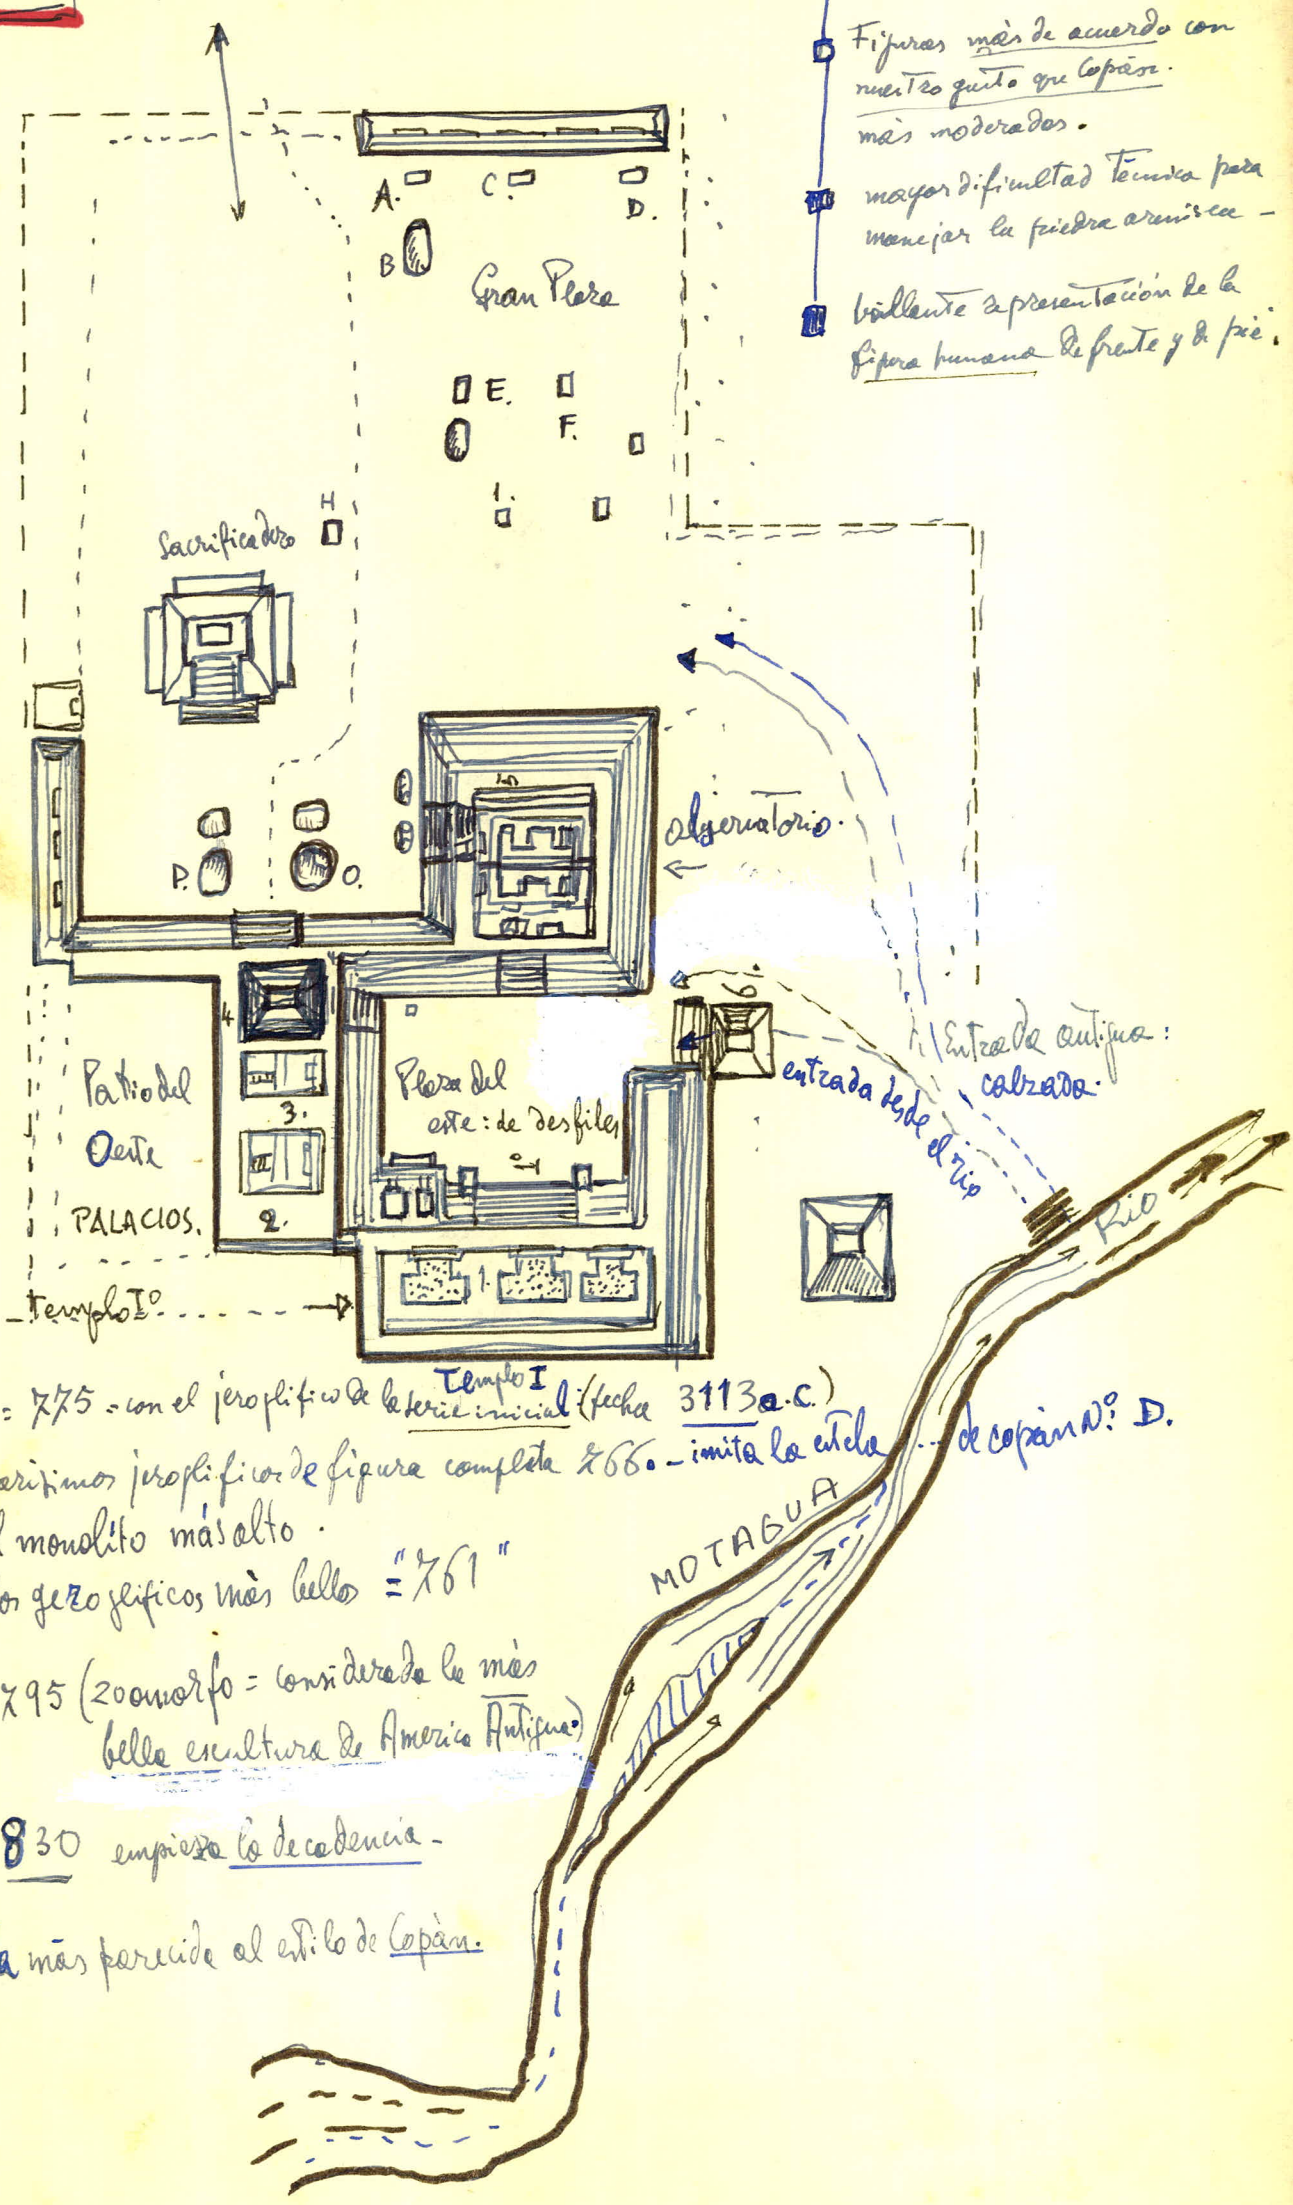 Figuras más de acuerdo con
nuestro gusto que Copán.
más moderados.
mayor dificultad técnica para
manejar la piedra arenisca -
brillante representación de la
figura humana de frente y de pié.
A.
C.
D.
B
Gran Plaza
E.
F.
H
1.
Sacrificadero
5
observatorio.
P.
O.
4
6.
Entrada antigua:
calzada.
entrada desde el río
Patio del
Oeste
PALACIOS.
3.
2.
Plaza del
este: de desfiles
1.
Río
Templo Iº
Templo I
= 775 = con el jeroglífico de la serie inicial: (fecha 3113 a.C.)
jeroglificos de figura completa 766. - imita la estela ... de copán Nº: D.
monolito más alto.
os geroglificos más bellos = "761"
MOTAGUA
795 (zoomorfo = considerada la más
bella escultura de America Antigua.)
830 empieza la decadencia -
a más parecida al estilo de Copán.